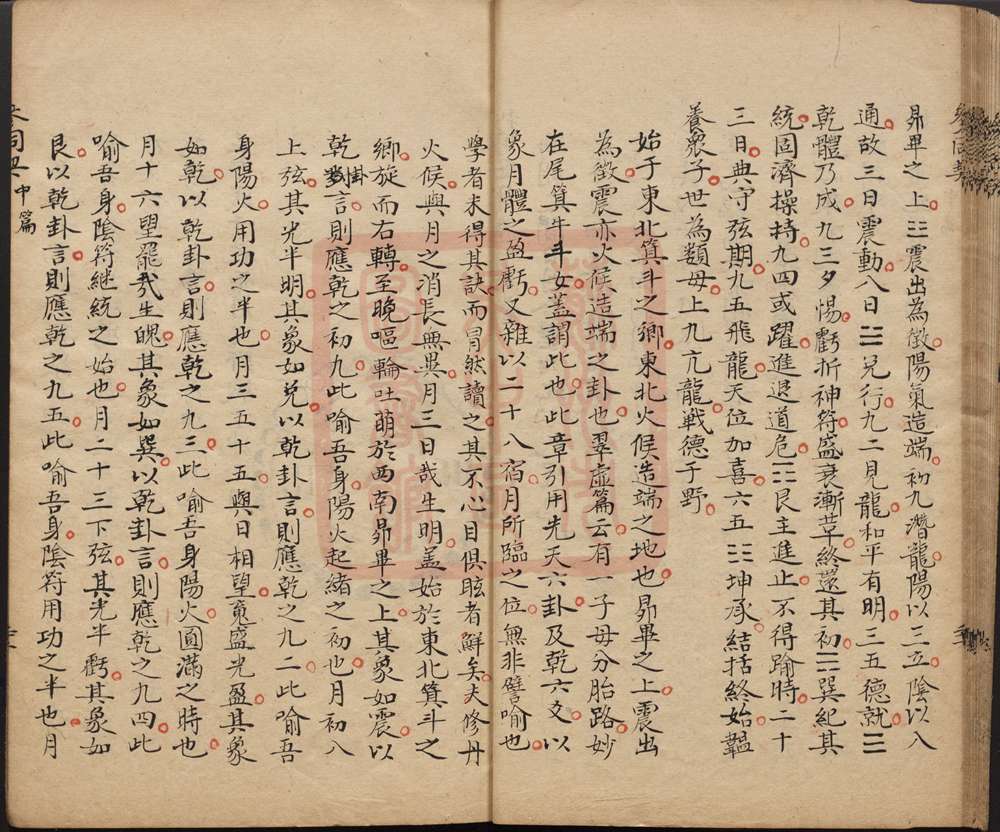 昴畢之上☳震出為徵陽氣造端初九潛龍陽以三立陰以八
通故三日震動八日☱兌行九二見龍和平有明三五德就☰
乾體乃成九三夕惕虧折神符盛衰漸革終還其初☴巽紀其
統固濟操持九四或躍進退道危☶艮主進止不得踰時二十
三日典守弦期九五飛龍天位加喜六五☷坤承結括終始韞
養眾子世為類母上九亢龍戰德于野
始于東北箕斗之鄉東北火候造端之地也昴畢之上震出
為徵震亦火候造端之卦也翠虛篇云有一子母分胎路妙
在尾箕牛斗女蓋謂此也此章引用先天六卦及乾六爻以
象月體之盈虧又雜以二十八宿月所臨之位無非譬喻也
學者未得其訣而冒然讀之其不心目俱眩者鮮矣夫修丹
火候與月之消長無異月三日哉生明蓋始於東北箕斗之
鄉旋而右轉至晚嘔輪吐萌於西南昴畢之上其象如震以
乾卦言則應乾之初九此喻吾身陽火起緒之初也月初八
上弦其光半明其象如兌以乾卦言則應乾之九二此喻吾
身陽火用功之半也月三五十五與日相望䰟盛光盈其象
如乾以乾卦言則應乾之九三此喻吾身陽火圓滿之時也
月十六望罷哉生魄其象如巽以乾卦言則應乾之九四此
喻吾身陰符継統之始也月二十三下弦其光半虧其象如
艮以乾卦言則應乾之九五此喻吾身陰符用功之半也月
參同契中篇